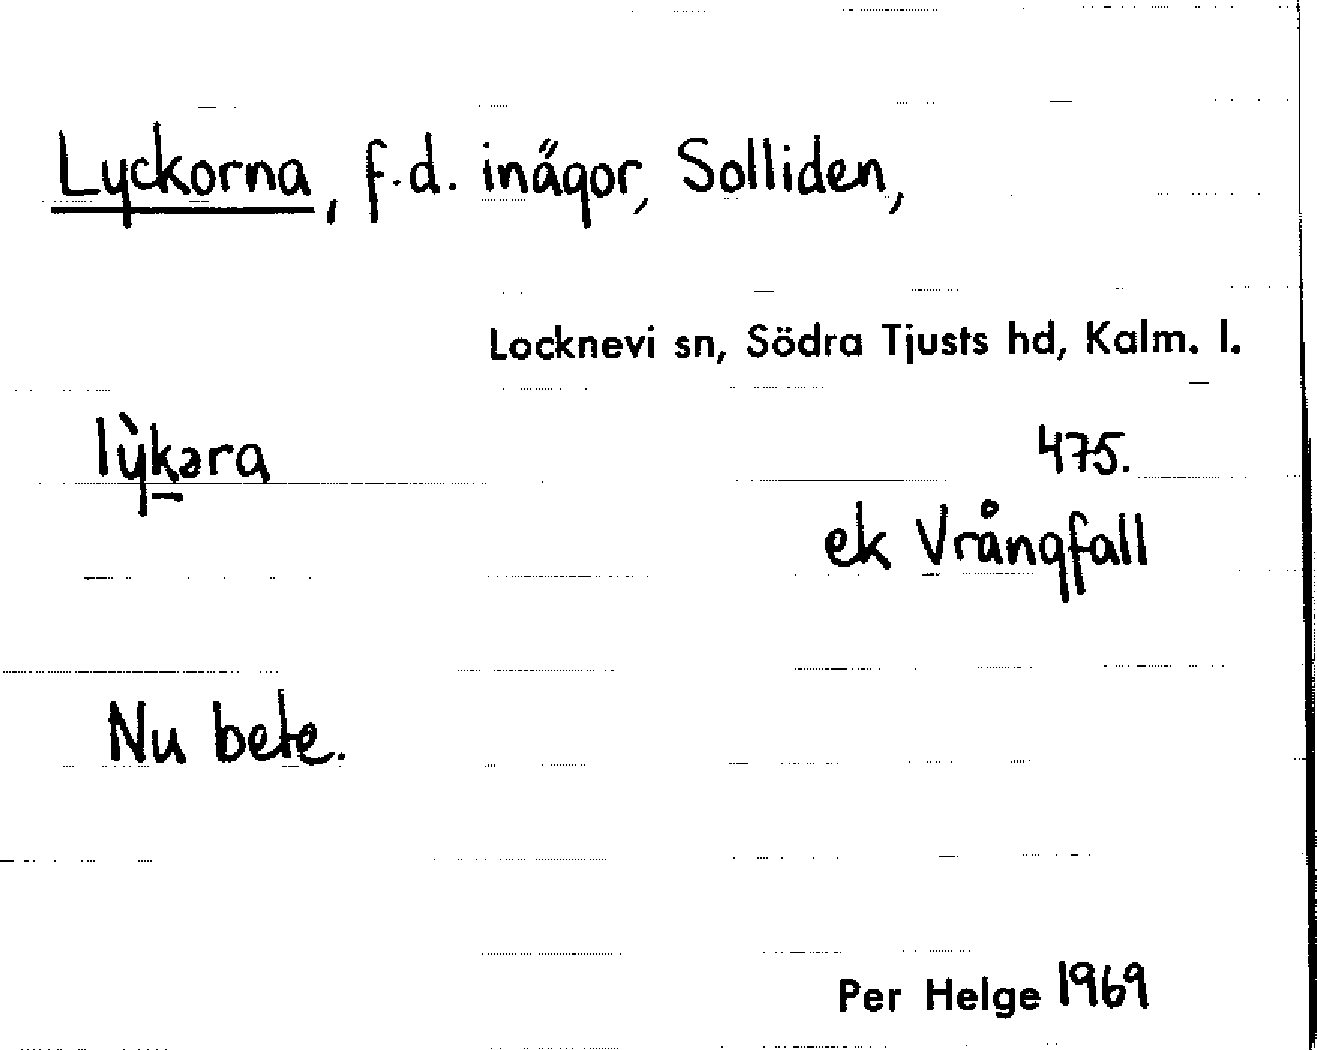 Lyckorna, f.d. inägor, Solliden,
Locknevi sn, Södra Tjusts hd, Kalm. l.
lỳk̠əra
475.
ek Vrångfall
Nu bete.
Per Helge 1969